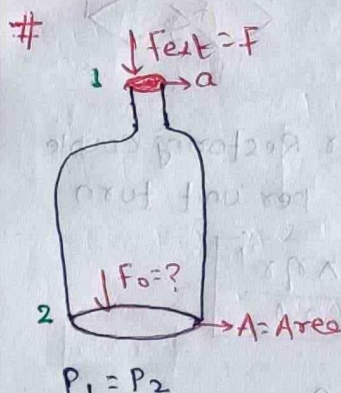 #
Fext = F
1
a
F₀ = ?
2
A = Area
P₁ = P₂